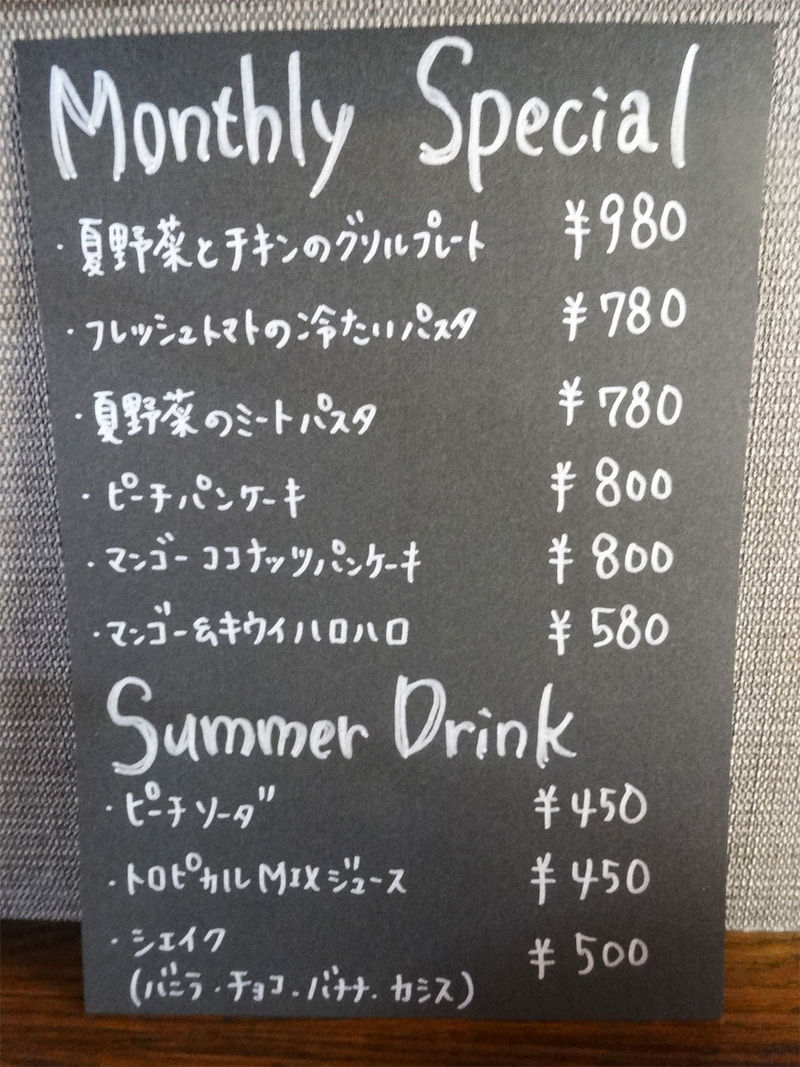 Monthly Special
・夏野菜とチキンのグリルプレート ¥980
・フレッシュトマトの冷たいパスタ ¥780
・夏野菜のミートパスタ ¥780
・ピーチパンケーキ ¥800
・マンゴーココナッツパンケーキ ¥800
・マンゴー&キウイハロハロ ¥580
Summer Drink
・ピーチソーダ ¥450
・トロピカルMIXジュース ¥450
・シェイク ¥500
(バニラ・チョコ・バナナ・カシス)